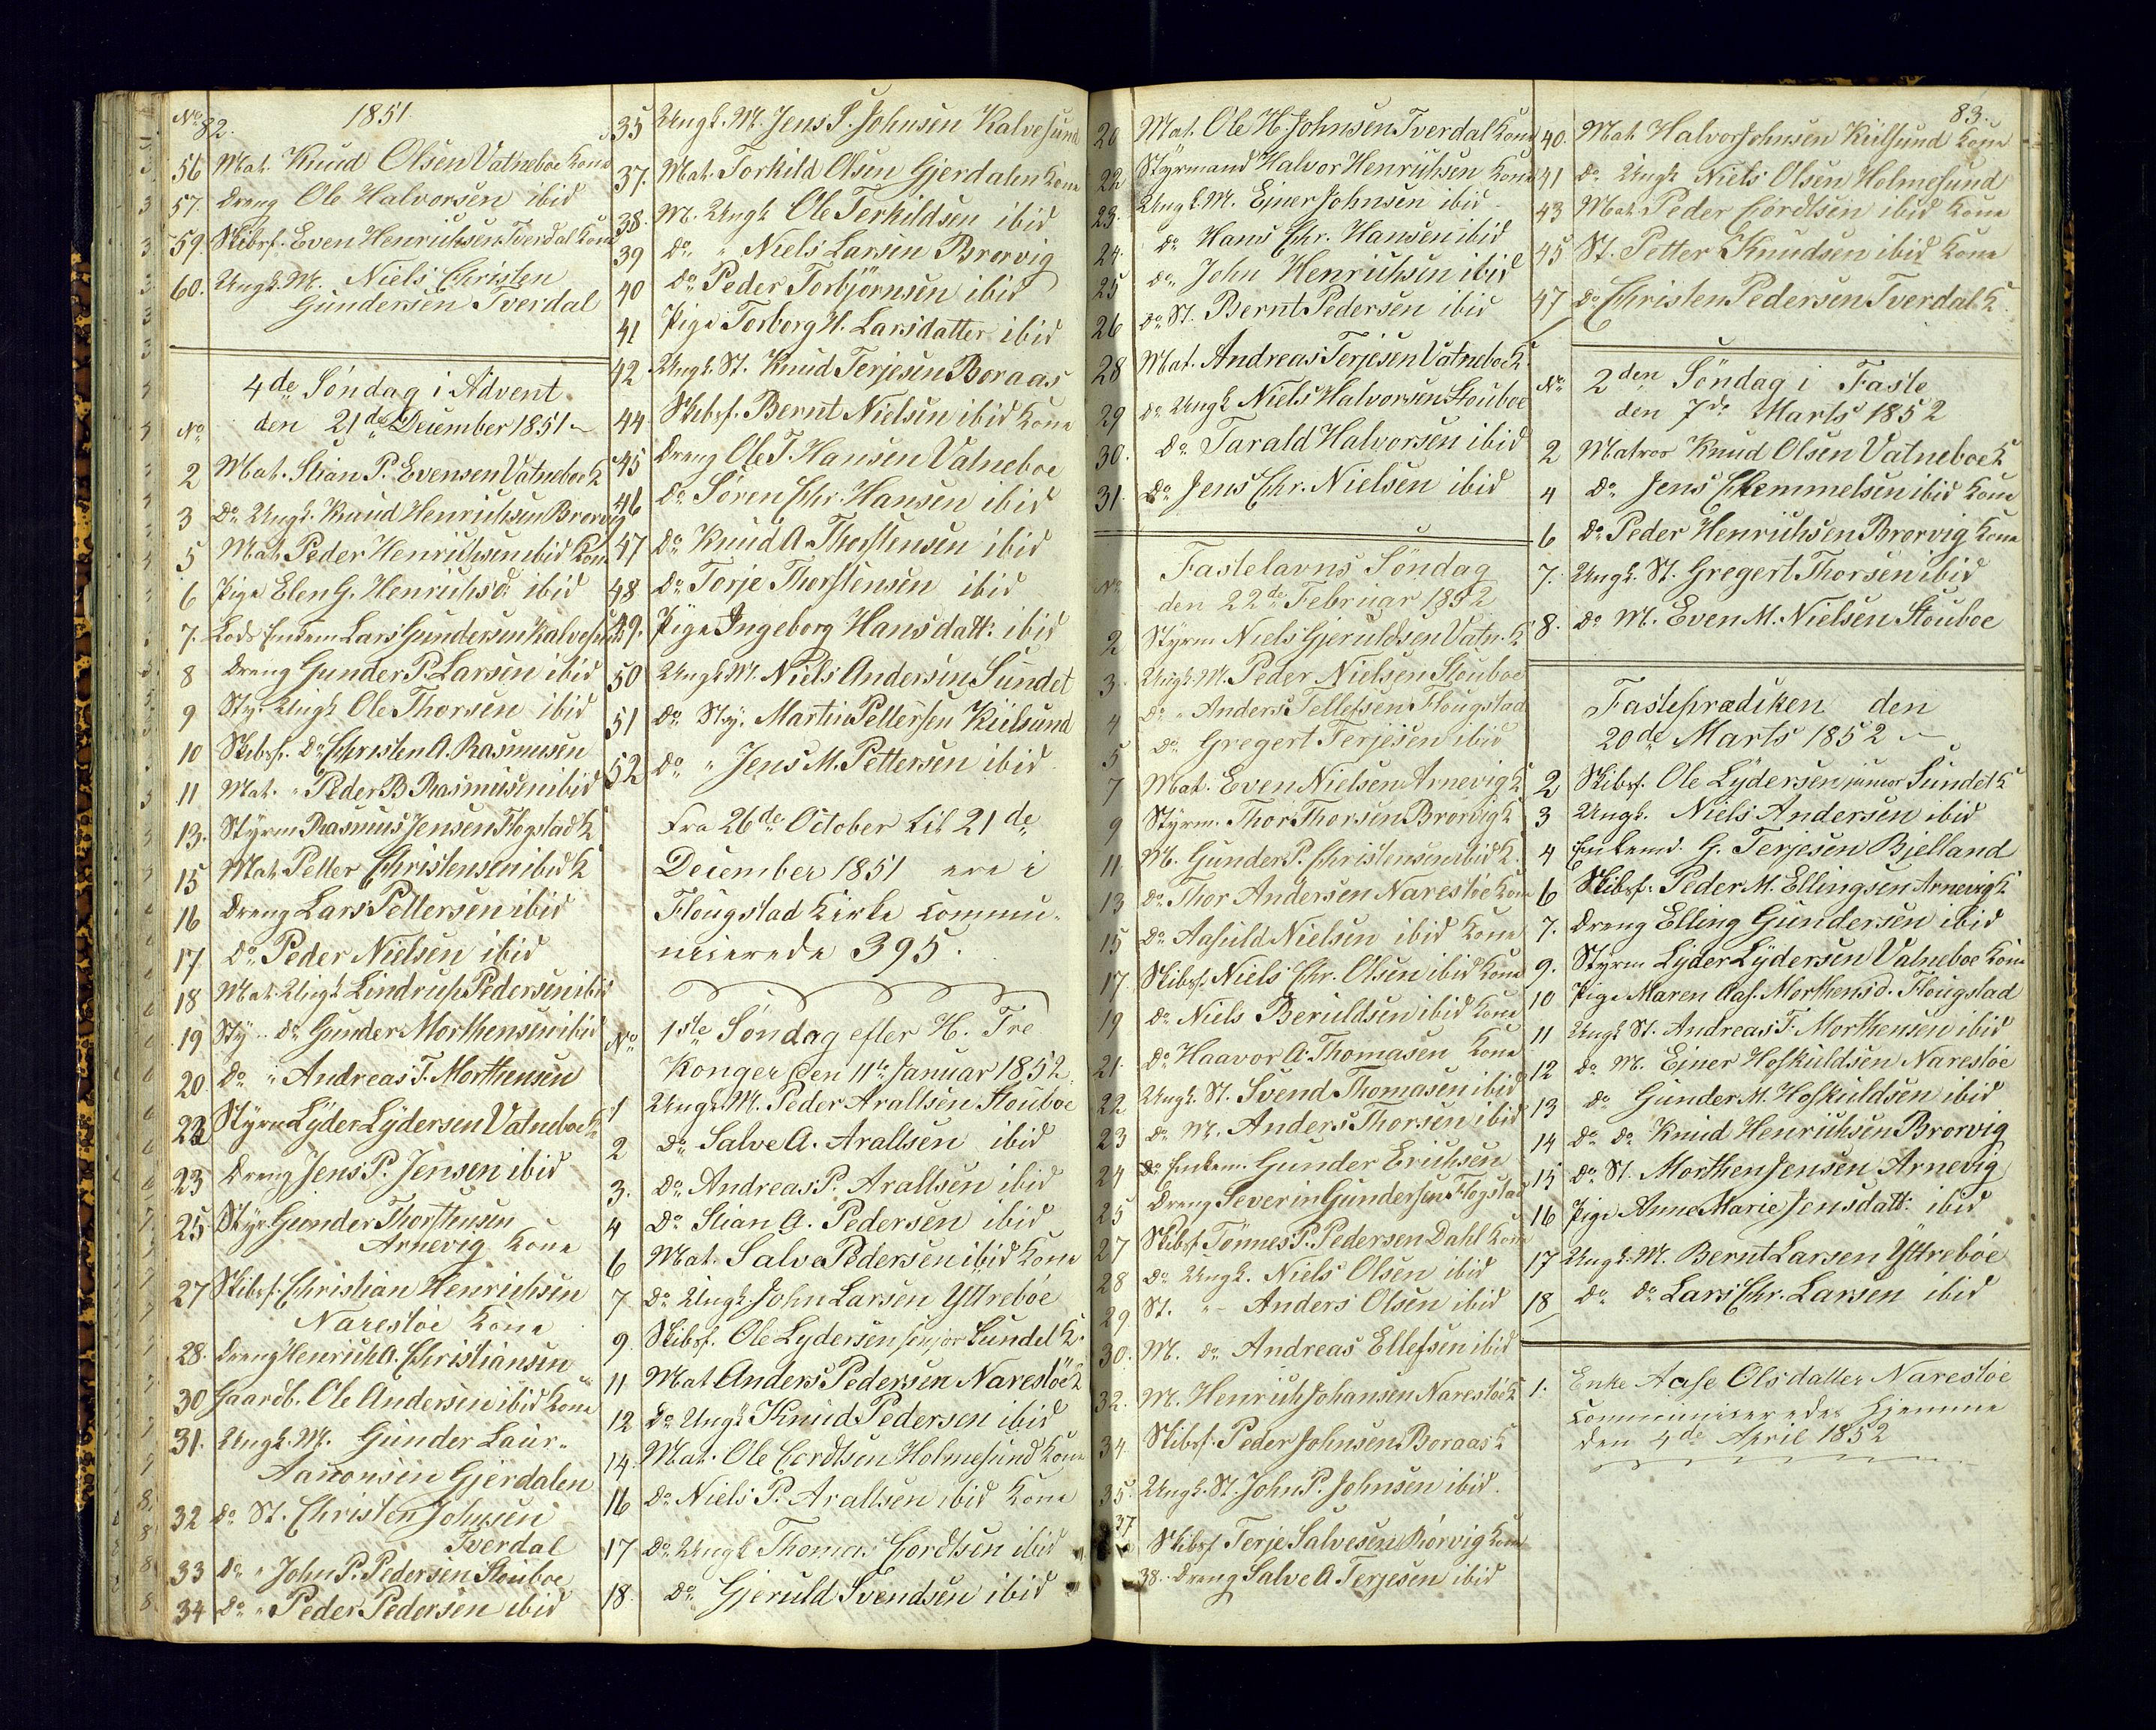 No
82.
1851.
56 Mat. Knud Olsen Vatneboe Kone
57. Dreng Ole Halvorsen ibid
59. Skibsf. Even Henrichsen Tverdal Kone
60. Ungk. M. Niels Christen
Gundersen Tverdal
4de Söndag i Advent
No den 21de December 1851
2 Mat. Stian P. Evensen Vatneboe K
3 Do Ungk. Knud Henrichsen Brorvig
5 Mat. Peder Henrichsen ibid Kone
6 Pige Elen G. Henrichsd. ibid
7. Lods Enkem Lars Gundersen Kalvesund
8 Dreng Gunder P. Larsen ibid
9 Sty. Ungk Ole Thorsen ibid
10 Skibsf. Do Christen A. Rasmusen
11 Mat. " Peder B Rasmusen ibid
13. Styrm Rasmus Jensen Flogstad K
15 Mat. Petter Christensen ibid K
16 Dreng Lars Pettersen ibid
17 Do Peder Nielsen ibid
18 Mat. Ungk Lindrup Pedersen ibid
19 Sty. Do Gunder Morthensen ibid
20 Do " Andreas T. Morthensen
22 Styrm Lyder Lydersen Vatneboe K
23 Dreng Jens P. Jensen ibid
25 Styr. Gunder Thorstensen
Arnevig Kone
27 Skibsf. Christian Henrichsen
Narestöe Kone
28. Dreng Henrich A. Christiansen
30 Gaardb. Ole Andersen ibid Kone
31. Ungk. M. Gunder Laur.
Aanonsen Gjerdalen
32 Do St. Christen Johnsen
Tverdal
33 Do " John P. Pedersen Stouboe
34 Do " Peder Pedersen ibid
35 Ungk. M. Jens S. Johnsen Kalvesund
37. Mat. Torkild Olsen Gjerdalen Kone
38. M. Ungk Ole Terkildsen ibid
39 Do " Niels Larsen Brorvig
40 Do Peder Torbjörnsen ibid
41 Pige Torborg H. Larsdatter ibid
42 Ungk. St. Knud Terjesen Boraas
44 Skibsf. Bernt Nielsen ibid Kone
45 Dreng Ole T. Hansen Vatneboe
46 Do Sören Chr. Hansen ibid
47 Do Knud A. Thorstensen ibid
48 Do Torje Thorstensen ibid
49. Pige Ingeborg Hansdatt: ibid
50 Ungk M. Niels Andersen Sundet
51 Do Sty. Martin Pettersen Kiilsund
52 Do " Jens M. Pettersen ibid
Fra 26de October til 21de
December 1851 ere i
Flougstad Kirke commu-
nicerede 395.
No 1ste Söndag efter H. Tre
Konger den 11te Januar 1852
1 Ungk. M. Peder Araltsen Stouboe
2 Do Salve A. Araltsen ibid
3. Do Andreas P. Araltsen ibid
4 Do Stian A. Pedersen ibid
6 Mat. Salve Pedersen ibid Kone
7 Do Ungk John Larsen Yttreböe
9. Skibsf. Ole Lydersen senjor Sundet K.
11 Mat Anders Pedersen Narestöe K
12 Do Ungk Knud Pedersen ibid
14. Mat. Ole Cordtsen Holmesund Kone
16 Do Niels P. Araltsen ibid Kone
17 Do Ungk Thomas Cordtsen ibid
18. Do Gjeruld Svendsen ibid
20 Mat. Ole H. Johnsen Tverdal Kone
22 Styrmand Halvor Henrichsen Kone
23. Ungk. M. Ejner Johnsen ibid
24. Do Hans Chr. Hansen ibid
25 Do John Henrichsen ibid
26 Do St. Bernt Pedersen ibid
28 Mat. Andreas Terjesen Vatneboe K.
29 Do Ungk Niels Halvorsen Stouboe
30. Do Tarald Halvorsen ibid
31. Do Jens Chr. Nielsen ibid
Fastelavns Söndag
No den 22de Februar 1852
2 Styrm Niels Gjeruldsen Vatn. K
3 Ungk. M. Peder Nielsen Stouboe
4 Do " Anders Tellefsen Flougstad
5 Do Gregert Terjesen ibid
7 Mat. Even Nielsen Arnevig K
9 Styrm. Thor Thorsen Brorvig K
11 M. Gunder P. Christensen ibid K.
13 Do Thor Andersen Narestöe Kone
15 Do Aasuld Nielsen ibid Kone
17 Skibsf. Niels Chr. Olsen ibid Kone
19 Do Niels Beruldsen ibid Kone
21. Do Haavor A. Thomasen Kone
22 Ungk. St. Svend Thomasen ibid
23 Do M. Anders Thorsen ibid
24 Do Enkem. Gunder Erichsen
25 Dreng Severin Gundersen Flogstad
27 Skibsf Tönnes P. Pedersen Dahl Kone
28 Do Ungk. Niels Olsen ibid
29 St. " Anders Olsen ibid
30. M. Do Andreas Ellefsen ibid
32. M. Henrich Johansen Narestöe K
34 Skibsf. Peder Johnsen Boraas K
35. Ungk. St. John P. Johnsen ibid.
37 Skibsf Terje Salvesen Rörvig Kone
38. Dreng Salve A Terjesen ibid
83.
40. Mat. Halvor Johnsen Kiilsund Kone
41 Do Ungk Niels Olsen Holmesund
43 Mat. Peder Cordtsen ibid Kone
45 St. Petter Knudsen ibid Kone
47 Do Christen Pedersen Tverdal K.
No 2den Söndag i Faste
den 7de Marts 1852
2 Matros Knud Olsen Vatneboe K
4 Do Jens Chemmelsen ibid Kone
6 Do Peder Henrichsen Brorvig Kone
7. Ungk. St. Gregert Thorsen ibid
8. Do M. Even M. Nielsen Stouboe
Fasteprædiken den
20de Marts 1852
2 Skibsf. Ole Lydersen junior Sundet K
3 Ungk. Niels Andersen ibid
4 Enkemd. G. Terjesen Bjelland
6 Skibsf. Peder M. Ellingsen Arnevig K
7. Dreng Elling Gundersen ibid
9. Styrm Lyder Lydersen Vatneboe Kone
10 Pige Maren Aas. Morthensd. Flougstad
11 Ungk St. Andreas T. Morthensen ibid
12 Do M. Einer Hofkuldsen Narestöe
13 Do Gunder M. Hofkuldsen ibid
14 Do Do Knud Henrichsen Brorvig
15 Do St. Morthen Jensen Arnevig
16 Pige Anne Marie Jensdatt: ibid
17 Ungk. M. Bernt Larsen Yttreböe
18 Do Do Lars Chr. Larsen ibid
1. Enke Aase Olsdatter Narestöe
communiceredes hjemme
den 4de April 1852